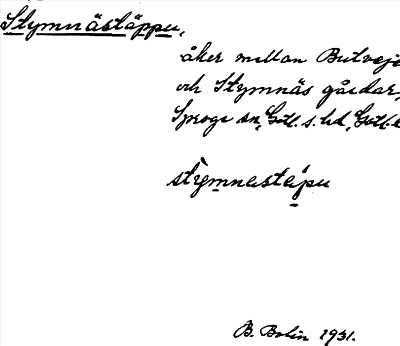 Stymnästäppu,
åker mellan Butveje
och Stymnäs gårdar,
Sproge sn, Gotl. s. hd, Gotl.
stymnastäpu
B. Bolin 1931.